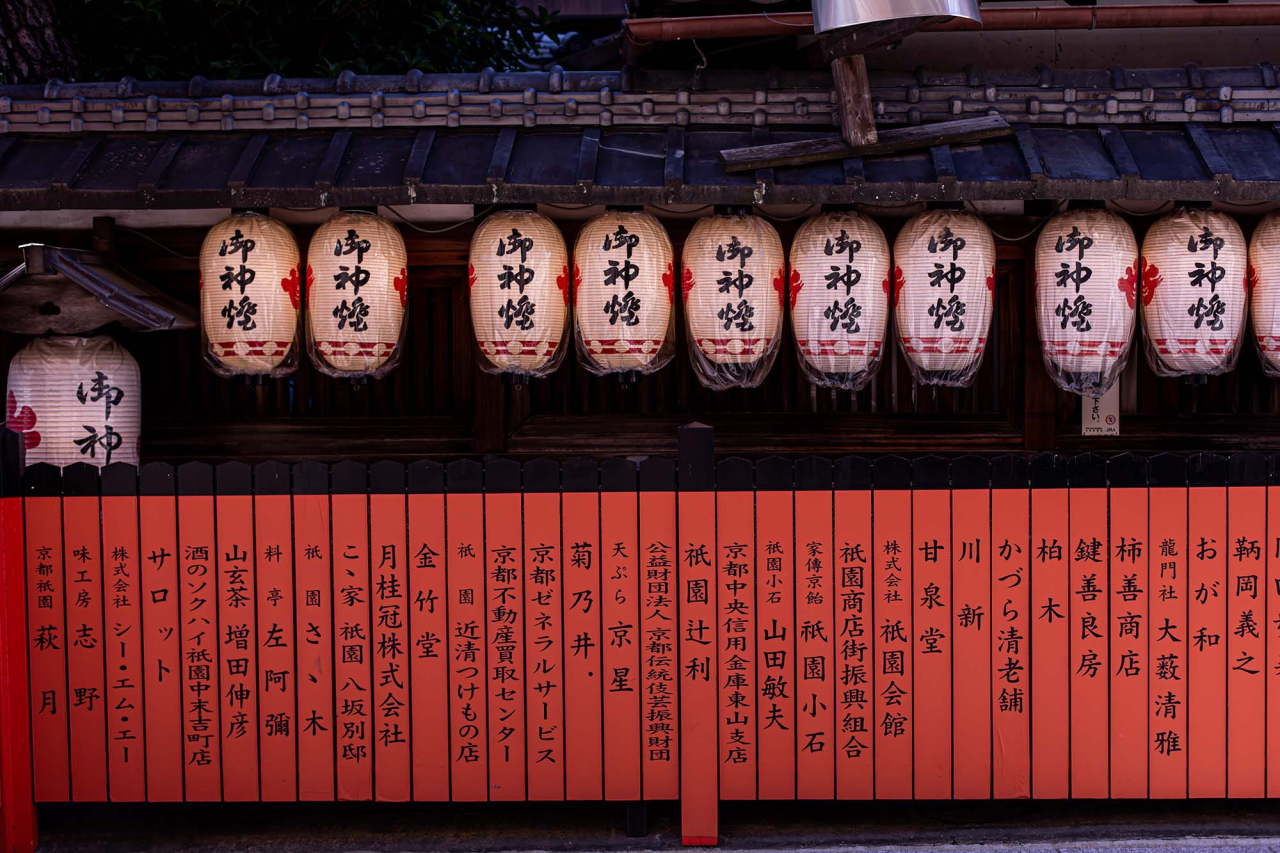 御神燈
御神燈
御神燈
御神燈
御神燈
御神燈
御神燈
御神燈
御神燈
御神
鞆岡義之
おが和
龍門社 大薮清雅
柿善商店
鍵善良房
柏木
かづら清老舗
川新
甘泉堂
株式会社 祇園会館
祇園商店街振興組合
家傳京飴 祇園小石
祇園小石 山田敏夫
京都中央信用金庫東山支店
祇園辻利
公益財団法人 京都伝統伎芸振興財団
天ぷら 京星
菊乃井・
京都ゼネラルサービス
京都不動産買取センター
祇園 近清つけもの店
金竹堂
月桂冠株式会社
こゝ家 祇園 八坂別邸
祇園 さゝ木
料亭 左阿彌
山玄茶 増田伸彦
酒のソクハイ祇園中末吉町店
サロット
株式会社 シー・エム・エー
味工房 志野
京都祇園 萩月